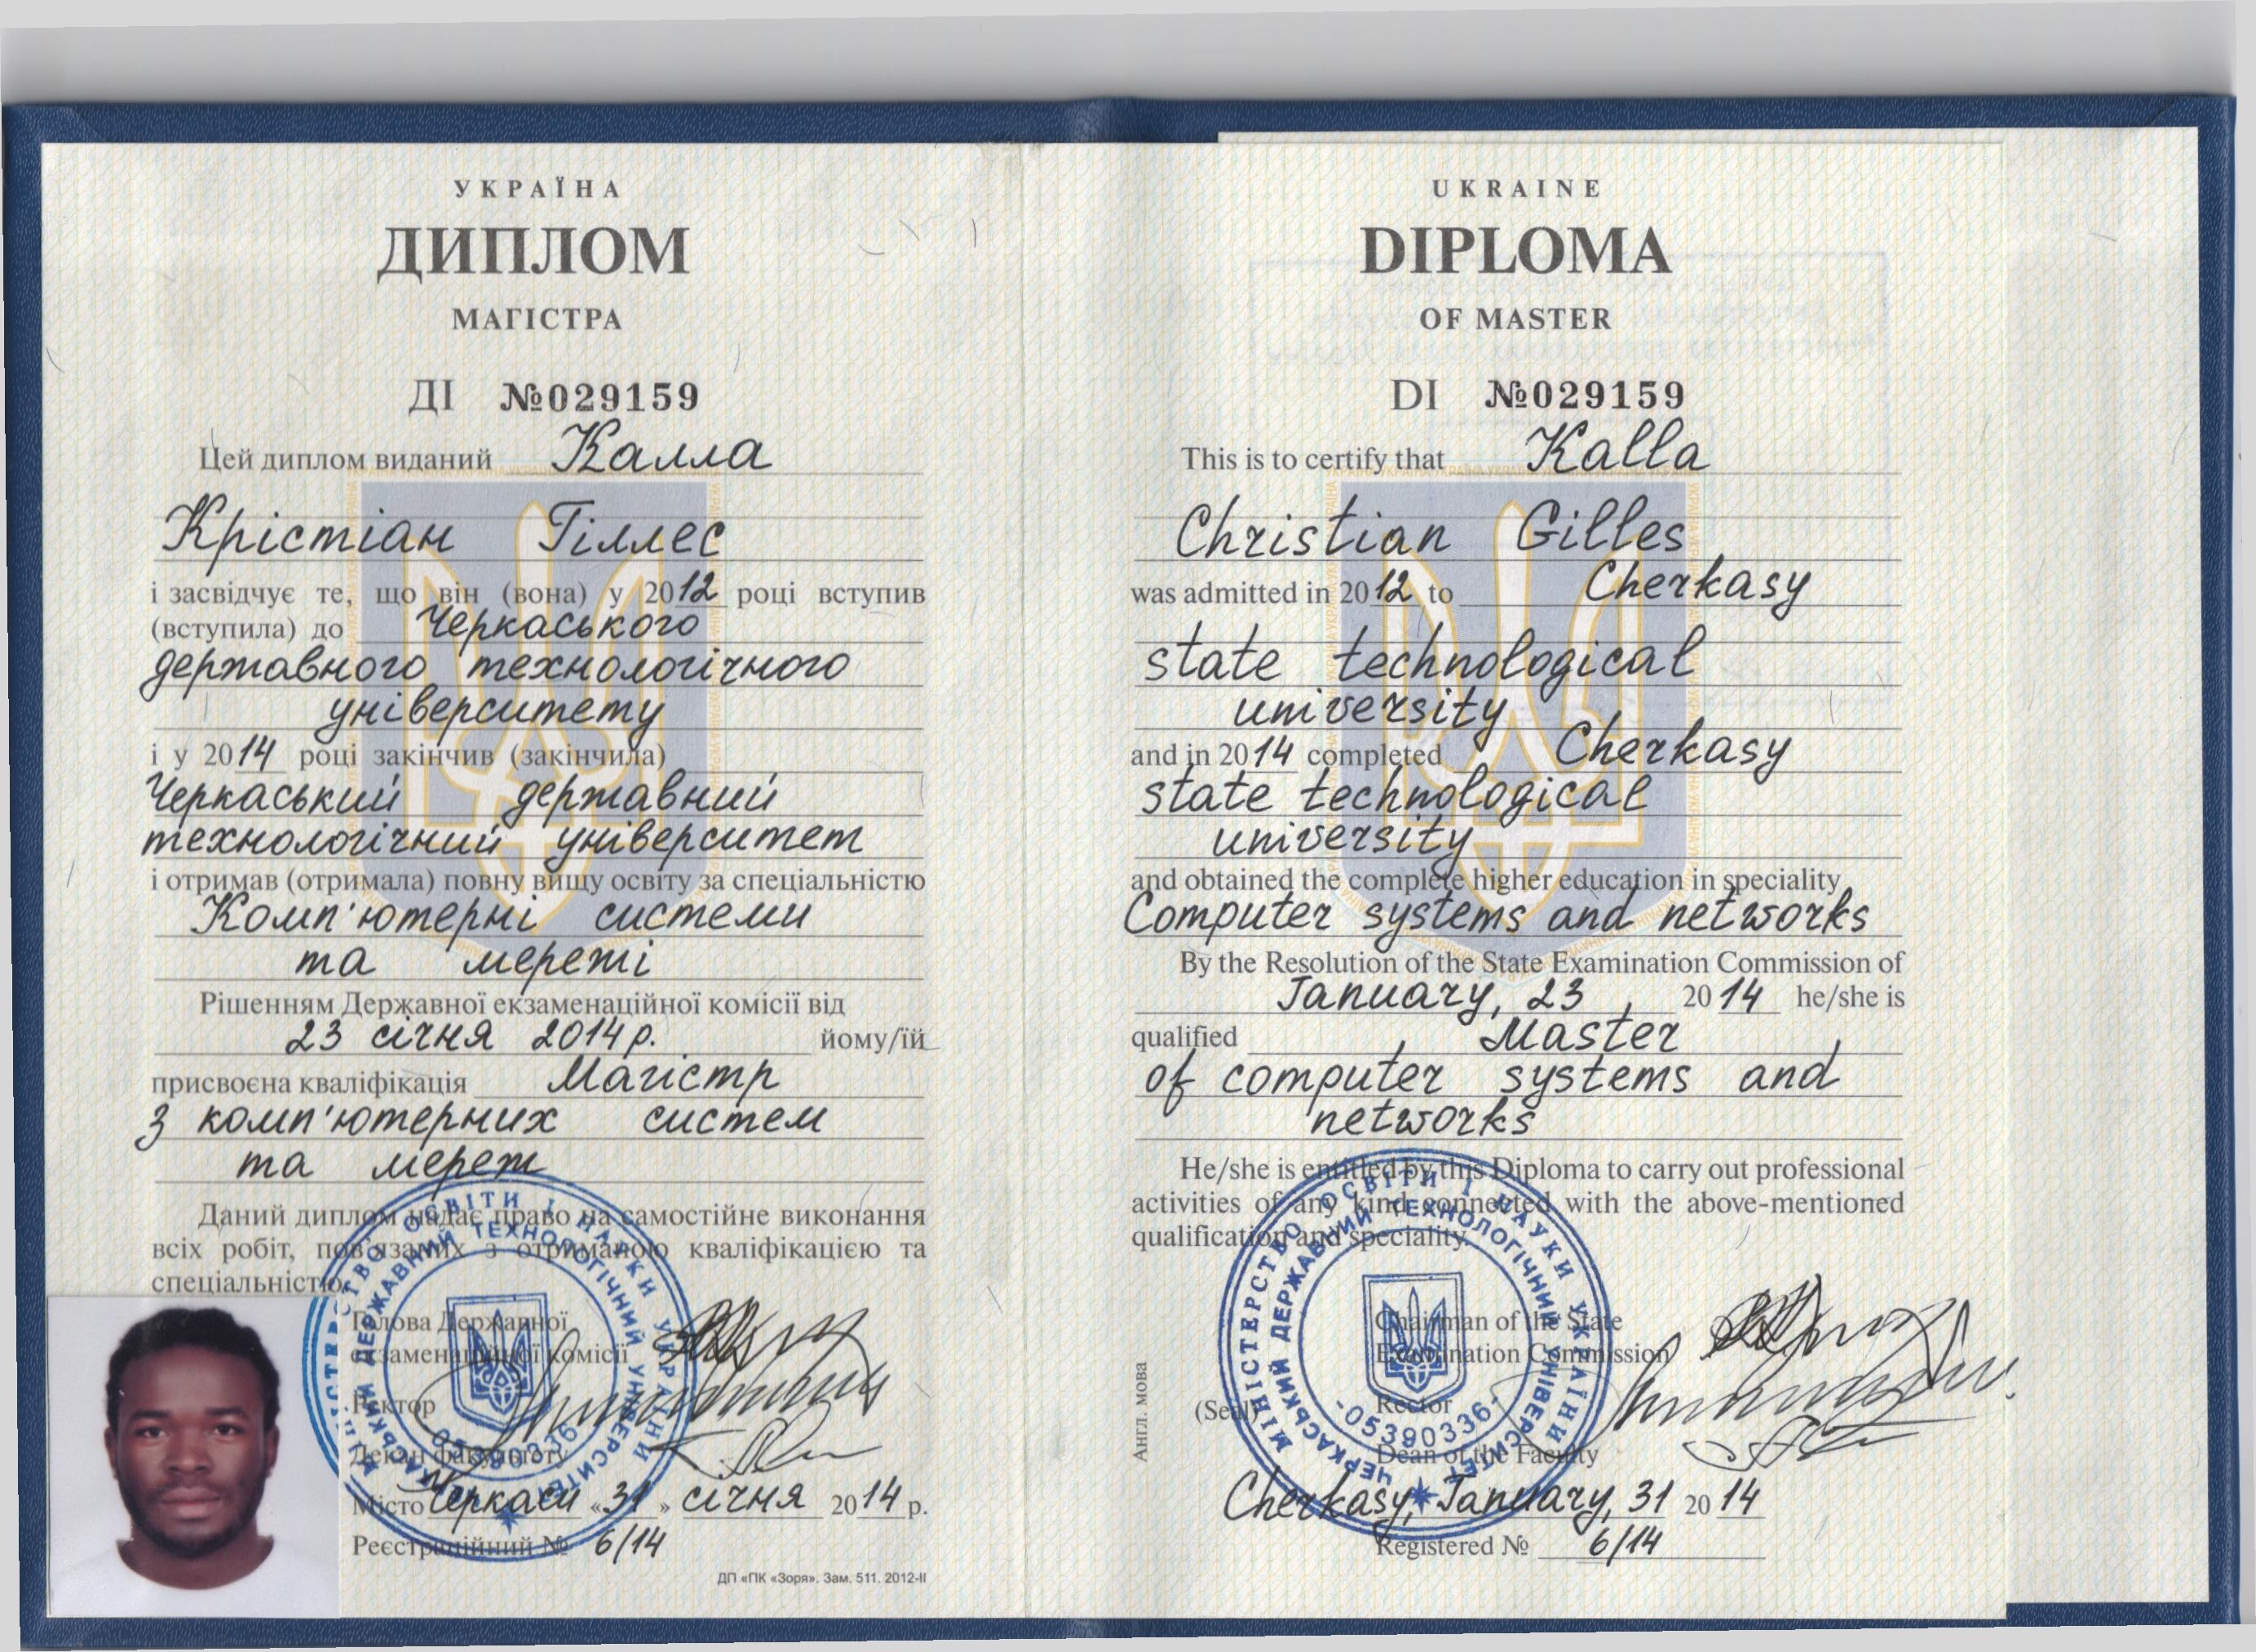 УКРАЇНА
ДИПЛОМ
МАГІСТРА
ДІ №029159
Цей диплом виданий Калла
Крістіан Гіллес
і засвідчує те, що він (вона) у 2012 році вступив
(вступила) до Черкаського
державного технологічного
університету
і у 2014 році закінчив (закінчила)
Черкаський державний
технологічний університет
і отримав (отримала) повну вищу освіту за спеціальністю
Комп'ютерні системи
та мережі
Рішенням Державної екзаменаційної комісії від
23 січня 2014 р. йому/їй
присвоєна кваліфікація Магістр
з комп'ютерних систем
та мереж
Даний диплом надає право на самостійне виконання
всіх робіт, пов'язаних з отриманою кваліфікацією та
спеціальністю.
Голова Державної
екзаменаційної комісії
Ректор
Декан факультету
Місто Черкаси «31» січня 2014 р.
Реєстраційний № 6/14
ДП «ПК «Зоря». Зам. 511. 2012-ІІ
UKRAINE
DIPLOMA
OF MASTER
DI №029159
This is to certify that Kalla
Christian Gilles
was admitted in 2012 to Cherkasy
state technological
university
and in 2014 completed Cherkasy
state technological
university
and obtained the complete higher education in speciality
Computer systems and networks
By the Resolution of the State Examination Commission of
January, 23, 2014 he/she is
qualified Master
of computer systems and
networks
He/she is entitled by this Diploma to carry out professional
activities of any kind connected with the above-mentioned
qualification and speciality.
Chairman of the State
Examination Commission
(Seal) Rector
Dean of the Faculty
Cherkasy, January, 31 2014
Registered № 6/14
Англ. мова
МІНІСТЕРСТВО ОСВІТИ І НАУКИ УКРАЇНИ
ЧЕРКАСЬКИЙ ДЕРЖАВНИЙ ТЕХНОЛОГІЧНИЙ УНІВЕРСИТЕТ
-05390336-